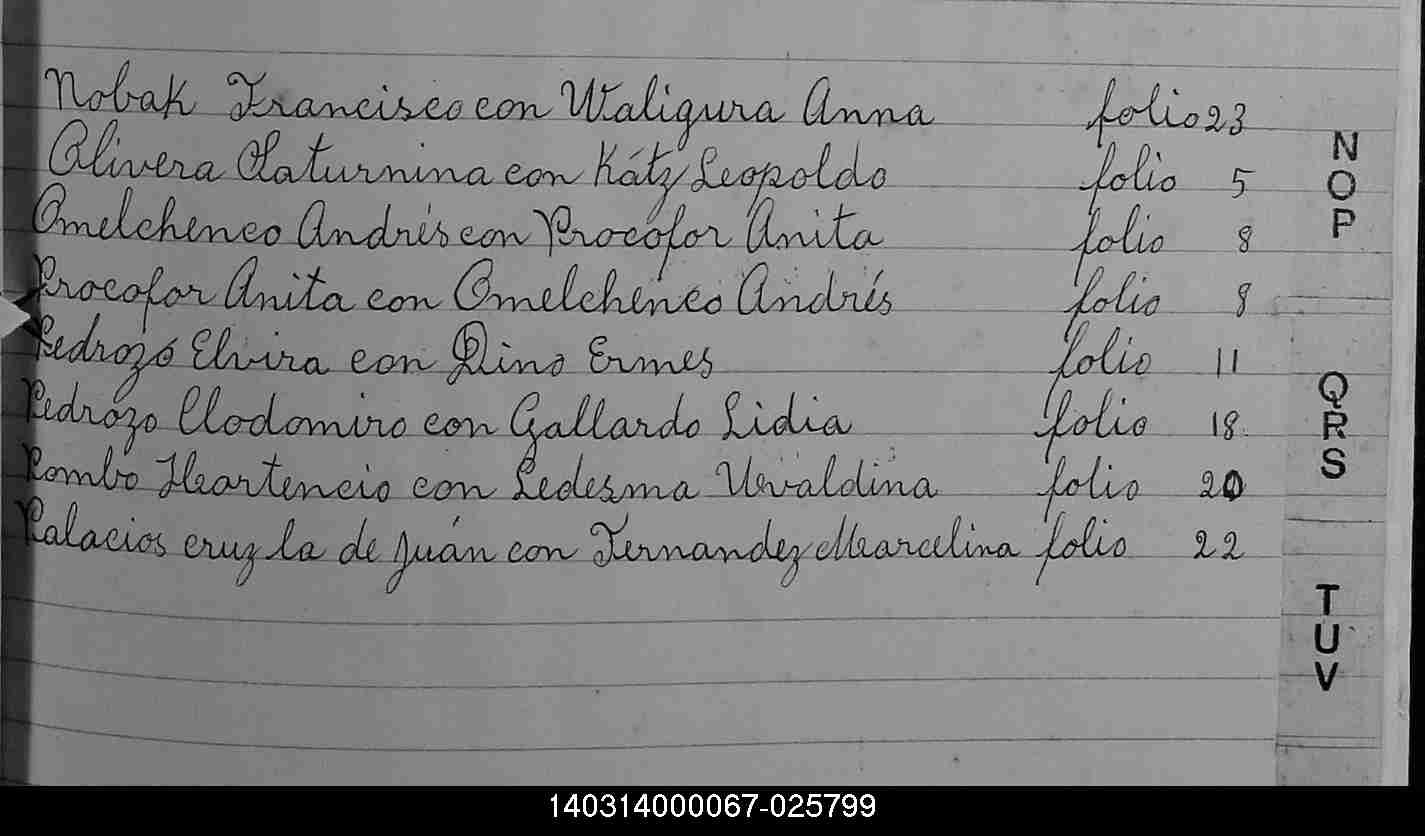 Nobak Francisco con Waligura Anna folio 23
Olivera Saturnina con Kátz Leopoldo folio 5
Omelchenco Andrés con Procofor Anita folio 8
Procofor Anita con Omelchenco Andrés folio 8
Pedrozo Elvira con Dino Ermes folio 11
Pedrozo Clodomiro con Gallardo Lidia folio 18
Pombo Hortencio con Ledesma Uvaldina folio 20
Palacios cruz la de Juán con Fernandez Marcelina folio 22
N
O
P
Q
R
S
T
U
V
140314000067-025799